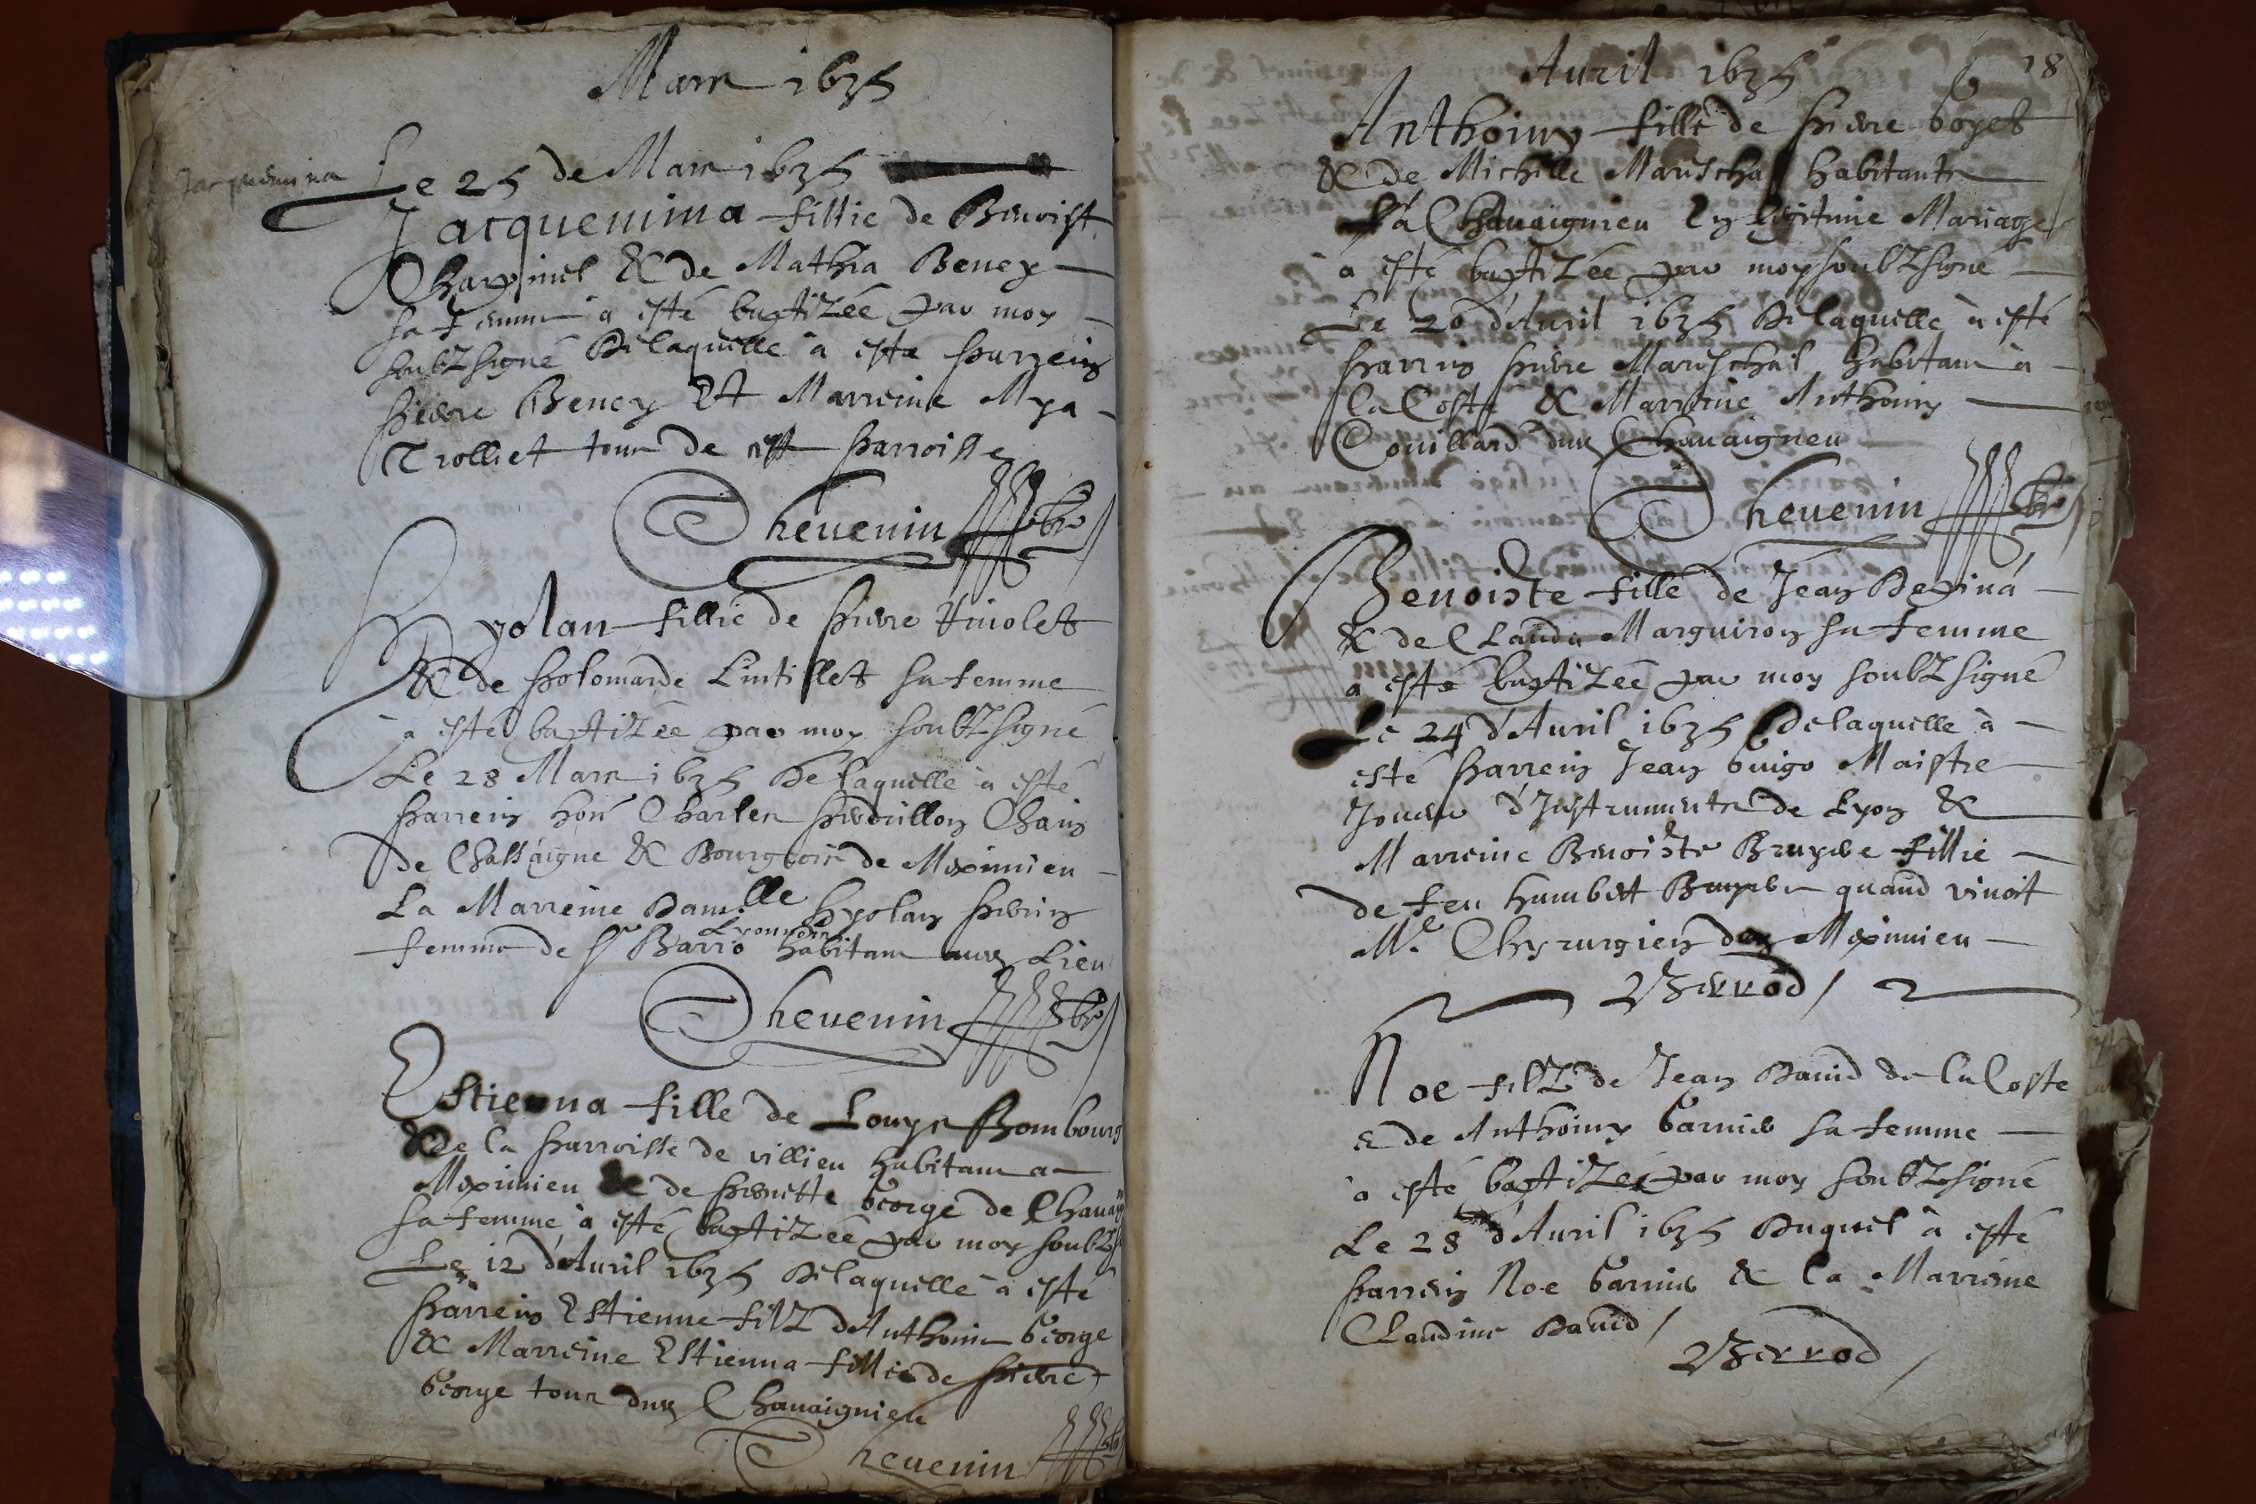 Mars 1635
Jacquemina
Le 25 de Mars 1635
Jacquemina fillie de Benoist
Charpinel & de Mathia Beney
sa femme à esté baptizée par moy
soubzsigné De laquelle à esté parrein
Pierre Beney Et Marreine Mya
Trolliet tous de cest parroisse
Thevenin
Hyolan fillie de Pierre Violet
& de Polomarde Lintillet sa femme
à esté baptizée par moy soubzsigné
Le 28 Mars 1635 De laquelle à esté
Parrein hon Charles Chain
de Chassaigne & Bourgeois de Meximieu
La Marreine Damlle Hyolan
Lyonnois
femme de Sr Barrio habitans Lieu
Thevenin
Estienna fille de Louys Bombourg
de la parroisse de villieu habitans a
Meximieu & de Pierrette George de
sa femme à esté baptizée par moy
Le 12 d'Avril 1635 De laquelle à esté
parrein Estienne filz d'Anthoine George
& Marreine Estienna fillie de Pierre
George tous dud Chavaignieu
Thevenin
Avril 1635
18
Anthoiny fille de Pierre Goyet
& de Michelle Mareschal habitants
à Chavaignieu En legitime Mariage
à esté baptizée par moy soubzsigné
Le 20 d'Avril 1635 De laquelle à esté
Parrin Pierre Mareschal habitans à
la Coste & Marreine Anthoiny
Couillard dud Chavaigneu
Thevenin
Benoiste fille de Jean Depina
& de Clauda Marguiron sa femme
a esté baptizée par moy soubzsigné
Le 24 d'Avril 1635 delaquelle à
esté Parrein Jean Guigo Maistre
Joueur d'Instruments de Lyon &
Marreine Benoiste Bruyere fillie
de feu humbert Bruyere quand vivoit
Me Chyrurgien dud Meximieu
Verrod
Noe filz de Jean David de la Coste
& de Anthoiny Garnier sa femme
a esté baptizé par moy soubzsigné
Le 28 d'Avril 1635 Duquel à esté
parrein Noe Garnier & la Marreine
Claudine David
Verrod